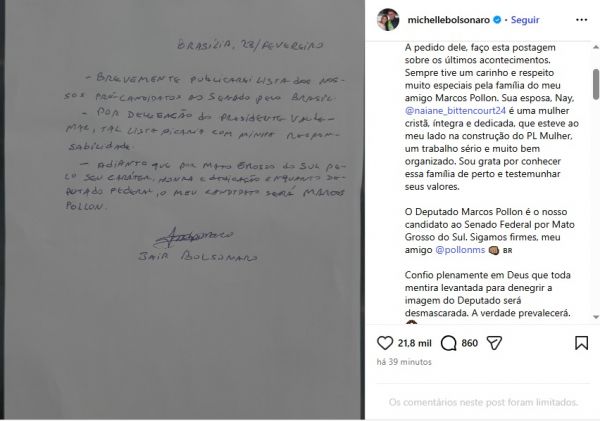 BRASÍLIA, 28/FEVEREIRO
- BREVEMENTE PUBLICAREI LISTA DOS NOS-
SOS PRÉ-CANDIDATOS AO SENADO PELO BRASIL
- POR DELEGAÇÃO DO PRESIDENTE VALDE-
MAR, TAL LISTA FICARIA COM MINHA RESPON-
SABILIDADE.
- ADIANTO QUE POR MATO GROSSO DO SUL PE-
LO SEU CARÁTER, HONRA E DEDICAÇÃO ENQUANTO DE-
PUTADO FEDERAL, O MEU CANDIDATO SERÁ MARCOS
POLLON.
JAIR BOLSONARO
michellebolsonaro • Seguir
A pedido dele, faço esta postagem
sobre os últimos acontecimentos.
Sempre tive um carinho e respeito
muito especiais pela família do meu
amigo Marcos Pollon. Sua esposa, Nay,
@naiane_bittencourt24 é uma mulher
cristã, íntegra e dedicada, que esteve ao
meu lado na construção do PL Mulher,
um trabalho sério e muito bem
organizado. Sou grata por conhecer
essa família de perto e testemunhar
seus valores.
O Deputado Marcos Pollon é o nosso
candidato ao Senado Federal por Mato
Grosso do Sul. Sigamos firmes, meu
amigo @pollonms BR
Confio plenamente em Deus que toda
mentira levantada para denegrir a
imagem do Deputado será
desmascarada. A verdade prevalecerá.
21,8 mil 860
há 39 minutos
Os comentários neste post foram limitados.